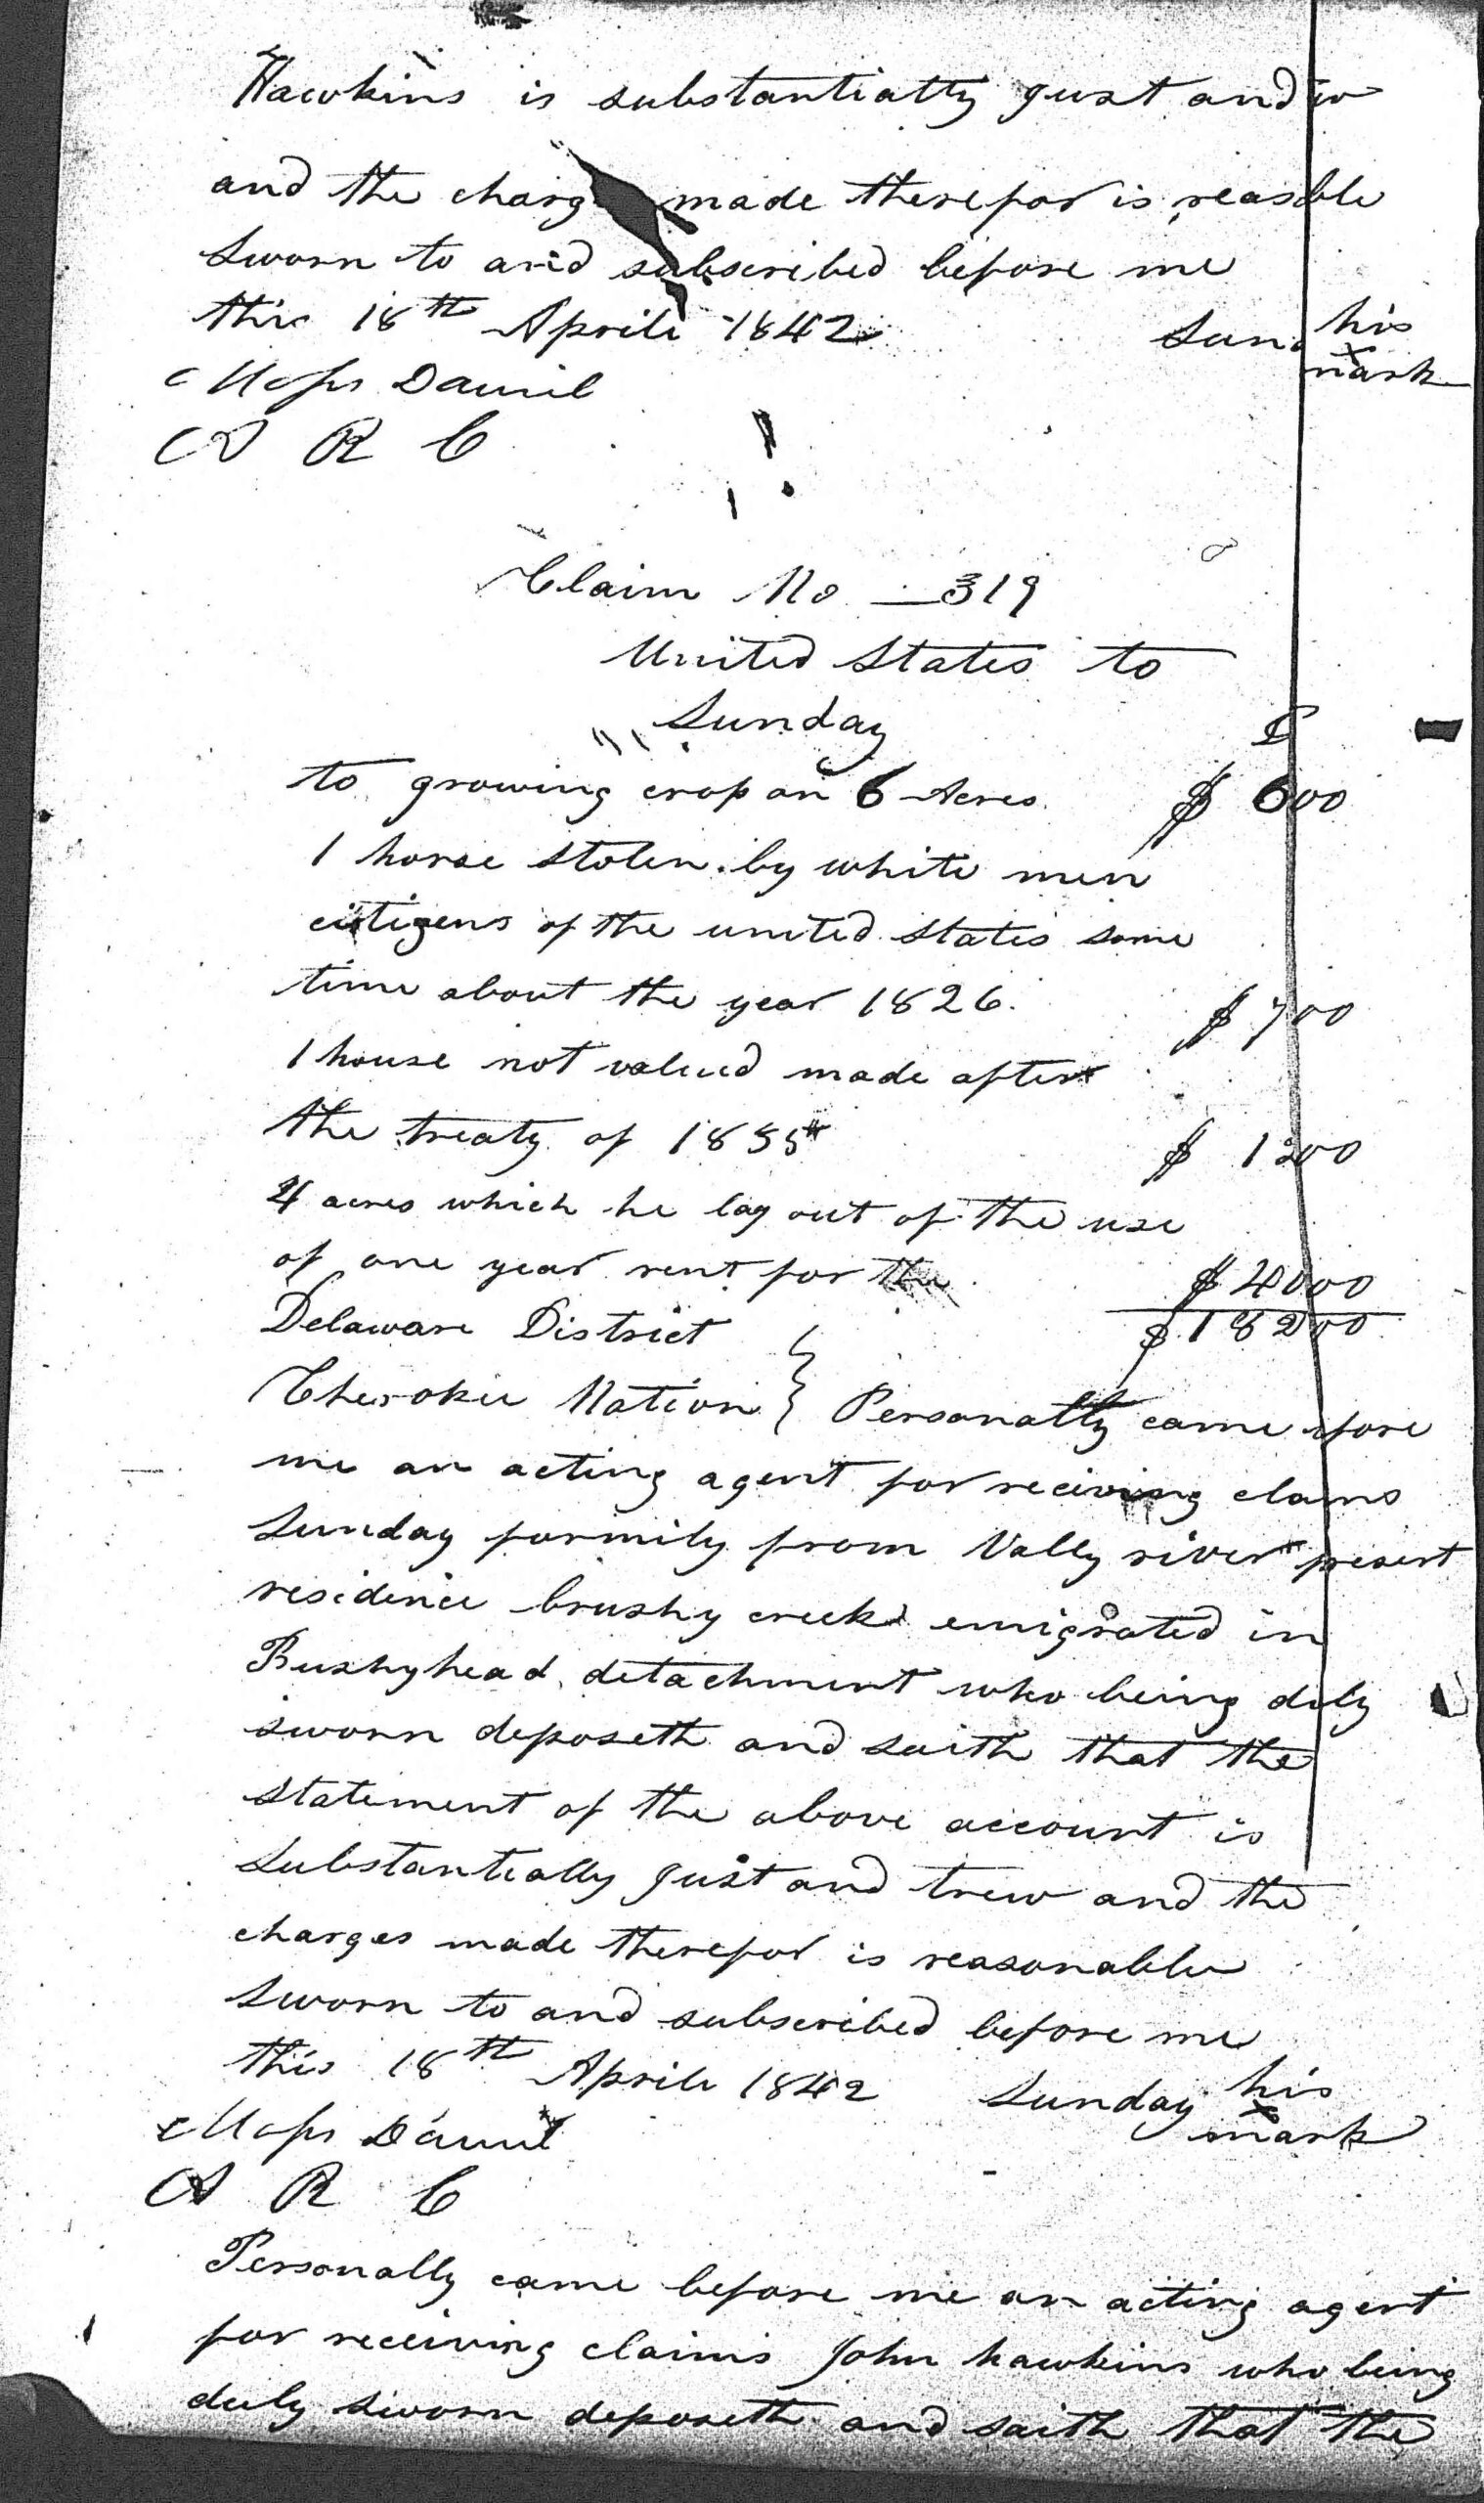 Hawkins is substantially just and
and the charg made therefor is reasble
Sworn to and subscribed before me
this 18th Aprile 1842 his
Moses Daniel mark
A R C
Claim No 319
United States to
Sunday
$
to growing crop on 6 Acres $ 600
1 horse stolen by white men
citizens of the united States some
time about the year 1826. $ 700
1 house not valued made after
the treaty of 1835 $ 1200
4 acres which he lay out of the use
of one year rent for the $ 4000
Delaware District $ 18200
Cherokee Nation } Personally came efore
me an acting agent for reciving clams
Sunday formily from Vally river present
residence brushy creek emigrated in
Bushyhead detachment who being duly
sworn deposeth and saith that the
statement of the above account is
Substantially just and trew and the
charges made therefor is reasonable
Sworn to and subscribed before me
this 18th Aprile 1842 Sunday his
x
Moses Daniel mark
A R C
Personally came before me an acting agent
for receiving claims John hawkins who being
duly sworn deposeth and saith that the